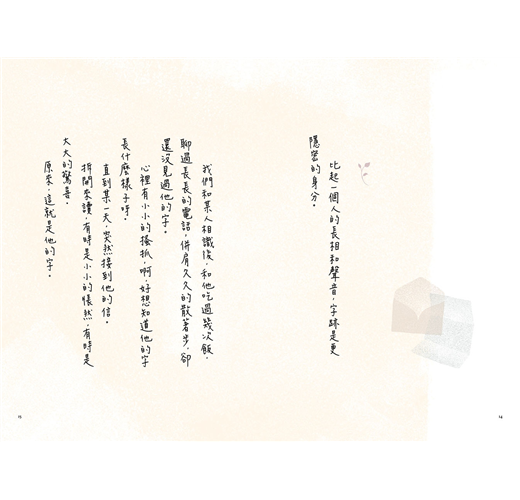 比起一個人的長相和聲音，字跡是更
隱密的身分。
我們和某人相識後，和他吃過幾次飯，
聊過長長的電話，併肩久久的散著步，卻
還沒見過他的字。
心裡有小小的搔抓，啊，好想知道他的字
長什麼樣子呀。
直到某一天，突然接到他的信。
拆開來讀，有時是小小的悵然，有時是
大大的驚喜。
原來，這就是他的字。
15
14